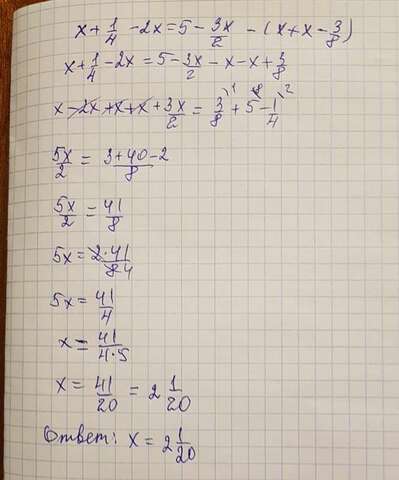 x + 1/4 - 2x = 5 - 3x/2 - (x + x - 3/8)
x + 1/4 - 2x = 5 - 3x/2 - x - x + 3/8
x - 2x + x + x + 3x/2 = 3/8 \1 + 5 \8 - 1/4 \2
5x/2 = (3+40-2)/8
5x/2 = 41/8
5x = 2·41/8 4
5x = 41/4
x = 41/4·5
x = 41/20 = 2 1/20
Ответ: x = 2 1/20